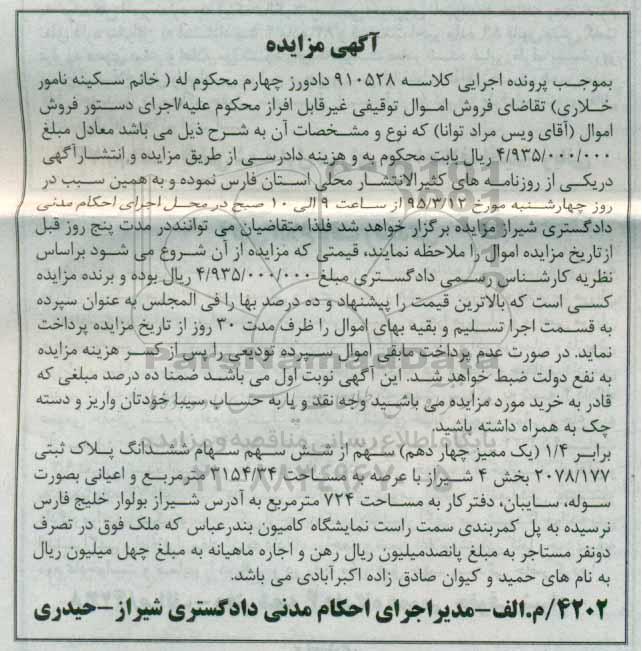 آگهی مزایده
بموجب پرونده اجرایی کلاسه ۹۱۰۵۲۸ دادورز چهارم محکوم له ( خانم سکینه نامور
خلاری) تقاضای فروش اموال توقیفی غیرقابل افراز محکوم علیه/اجرای دستور فروش
اموال (آقای ویس مراد توانا) که نوع و مشخصات آن به شرح ذیل می باشد معادل مبلغ
۴/۹۳۵/۰۰۰/۰۰۰ ریال بابت محکوم به و هزینه دادرسی از طریق مزایده و انتشارآگهی
دریکی از روزنامه های کثیرالانتشار محلی استان فارس نموده و به همین سبب در
روز چهارشنبه مورخ ۹۵/۳/۱۲ از ساعت ۹ الی ۱۰ صبح در محل اجرای احکام مدنی
دادگستری شیراز مزایده برگزار خواهد شد فلذا متقاضیان می تواننددر مدت پنج روز قبل
ازتاریخ مزایده اموال را ملاحظه نمایند، قیمتی که مزایده از آن شروع می شود براساس
نظریه کارشناس رسمی دادگستری مبلغ ۴/۹۳۵/۰۰۰/۰۰۰ ریال بوده و برنده مزایده
کسی است که بالاترین قیمت را پیشنهاد و ده درصد بها را فی المجلس به عنوان سپرده
به قسمت اجرا تسلیم و بقیه بهای اموال را ظرف مدت ۳۰ روز از تاریخ مزایده پرداخت
نماید. در صورت عدم پرداخت مابقی اموال سپرده تودیعی را پس از کسر هزینه مزایده
به نفع دولت ضبط خواهد شد. این آگهی نوبت اول می باشد ضمنا ده درصد مبلغی که
قادر به خرید مورد مزایده می باشید وجه نقد و یا به حساب سیبا خودتان واریز و دسته
چک به همراه داشته باشید.
برابر ۱/۴ (یک ممیز چهار دهم) سهم از شش سهم سهام ششدانگ پلاک ثبتی
۲۰۷۸/۱۷۷ بخش ۴ شیراز با عرصه به مساحت ۳۱۵۴/۳۴ مترمربع و اعیانی بصورت
سوله، سایبان، دفترکار به مساحت ۷۲۴ مترمربع به آدرس شیراز بولوار خلیج فارس
نرسیده به پل کمربندی سمت راست نمایشگاه کامیون بندرعباس که ملک فوق در تصرف
دونفر مستاجر به مبلغ پانصدمیلیون ریال رهن و اجاره ماهیانه به مبلغ چهل میلیون ریال
به نام های حمید و کیوان صادق زاده اکبرآبادی می باشد.
۴۲۰۲/م.الف-مدیراجرای احکام مدنی دادگستری شیراز-حیدری
ParsNamadData
پایگاه اطلاع رسانی مناقصه و مزایده